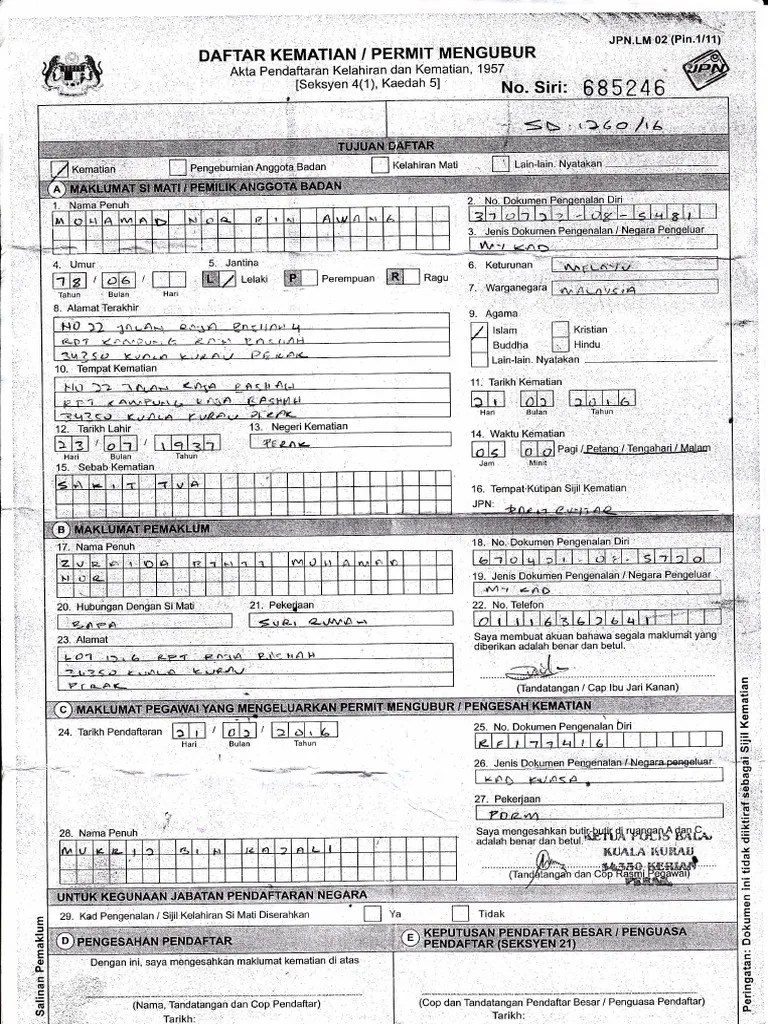 JPN.LM 02 (Pin.1/11)
DAFTAR KEMATIAN / PERMIT MENGUBUR
Akta Pendaftaran Kelahiran dan Kematian, 1957
[Seksyen 4(1), Kaedah 5]
No. Siri: 685246
JPN
SD : 1260/16
TUJUAN DAFTAR
Kematian Pengebumian Anggota Badan Kelahiran Mati Lain-lain. Nyatakan
A MAKLUMAT SI MATI / PEMILIK ANGGOTA BADAN
1. Nama Penuh
MOHAMAD NOR BIN AWANG
2. No. Dokumen Pengenalan Diri
370723-08-5481
3. Jenis Dokumen Pengenalan / Negara Pengeluar
MY KAD
4. Umur
78 / 06 /
Tahun Bulan Hari
5. Jantina
L Lelaki P Perempuan R Ragu
6. Keturunan MELAYU
7. Warganegara MALAYSIA
8. Alamat Terakhir
NO 22 JALAN RAJA BASHAH 4
RPT KAMPUNG RAJA BASHAH
34350 KUALA KURAU PERAK
9. Agama
Islam Kristian
Buddha Hindu
Lain-lain. Nyatakan
10. Tempat Kematian
NO 22 JALAN RAJA BASHAH
RPT KAMPUNG RAJA BASHAH
34350 KUALA KURAU PERAK
11. Tarikh Kematian
21 02 2016
Hari Bulan Tahun
12. Tarikh Lahir
23 / 07 / 1937
Hari Bulan Tahun
13. Negeri Kematian
PERAK
14. Waktu Kematian
05 00 Pagi / Petang / Tengahari / Malam
Jam Minit
15. Sebab Kematian
SAKIT TUA
16. Tempat Kutipan Sijil Kematian
JPN: PARIT BUNTAR
B MAKLUMAT PEMAKLUM
17. Nama Penuh
ZURAIDA BINTI MOHAMAD
NOR
18. No. Dokumen Pengenalan Diri
670421-08-5720
19. Jenis Dokumen Pengenalan / Negara Pengeluar
MY KAD
20. Hubungan Dengan Si Mati
BAPA
21. Pekerjaan
SURI RUMAH
22. No. Telefon
01116362641
23. Alamat
LOT 1236 RPT RAJA BASHAH
34350 KUALA KURAU
PERAK
Saya membuat akuan bahawa segala maklumat yang
diberikan adalah benar dan betul.
(Tandatangan / Cap Ibu Jari Kanan)
C MAKLUMAT PEGAWAI YANG MENGELUARKAN PERMIT MENGUBUR / PENGESAH KEMATIAN
24. Tarikh Pendaftaran 21 / 02 / 2016
Hari Bulan Tahun
25. No. Dokumen Pengenalan Diri
RF177416
26. Jenis Dokumen Pengenalan / Negara pengeluar
KAD KUASA
27. Pekerjaan
PDRM
28. Nama Penuh
MUKRIZ BIN RAZALI
Saya mengesahkan butir-butir di ruangan A dan C
adalah benar dan betul.
KETUA POLIS BALAI
KUALA KURAU
34350 KERIAN
PERAK
(Tandatangan dan Cop Rasmi Pegawai)
UNTUK KEGUNAAN JABATAN PENDAFTARAN NEGARA
29. Kad Pengenalan / Sijil Kelahiran Si Mati Diserahkan Ya Tidak
D PENGESAHAN PENDAFTAR
Dengan ini, saya mengesahkan maklumat kematian di atas
(Nama, Tandatangan dan Cop Pendaftar)
Tarikh:
E KEPUTUSAN PENDAFTAR BESAR / PENGUASA
PENDAFTAR (SEKSYEN 21)
(Cop dan Tandatangan Pendaftar Besar / Penguasa Pendaftar)
Tarikh:
Salinan Pemaklum
Peringatan: Dokumen ini tidak diiktiraf sebagai Sijil Kematian